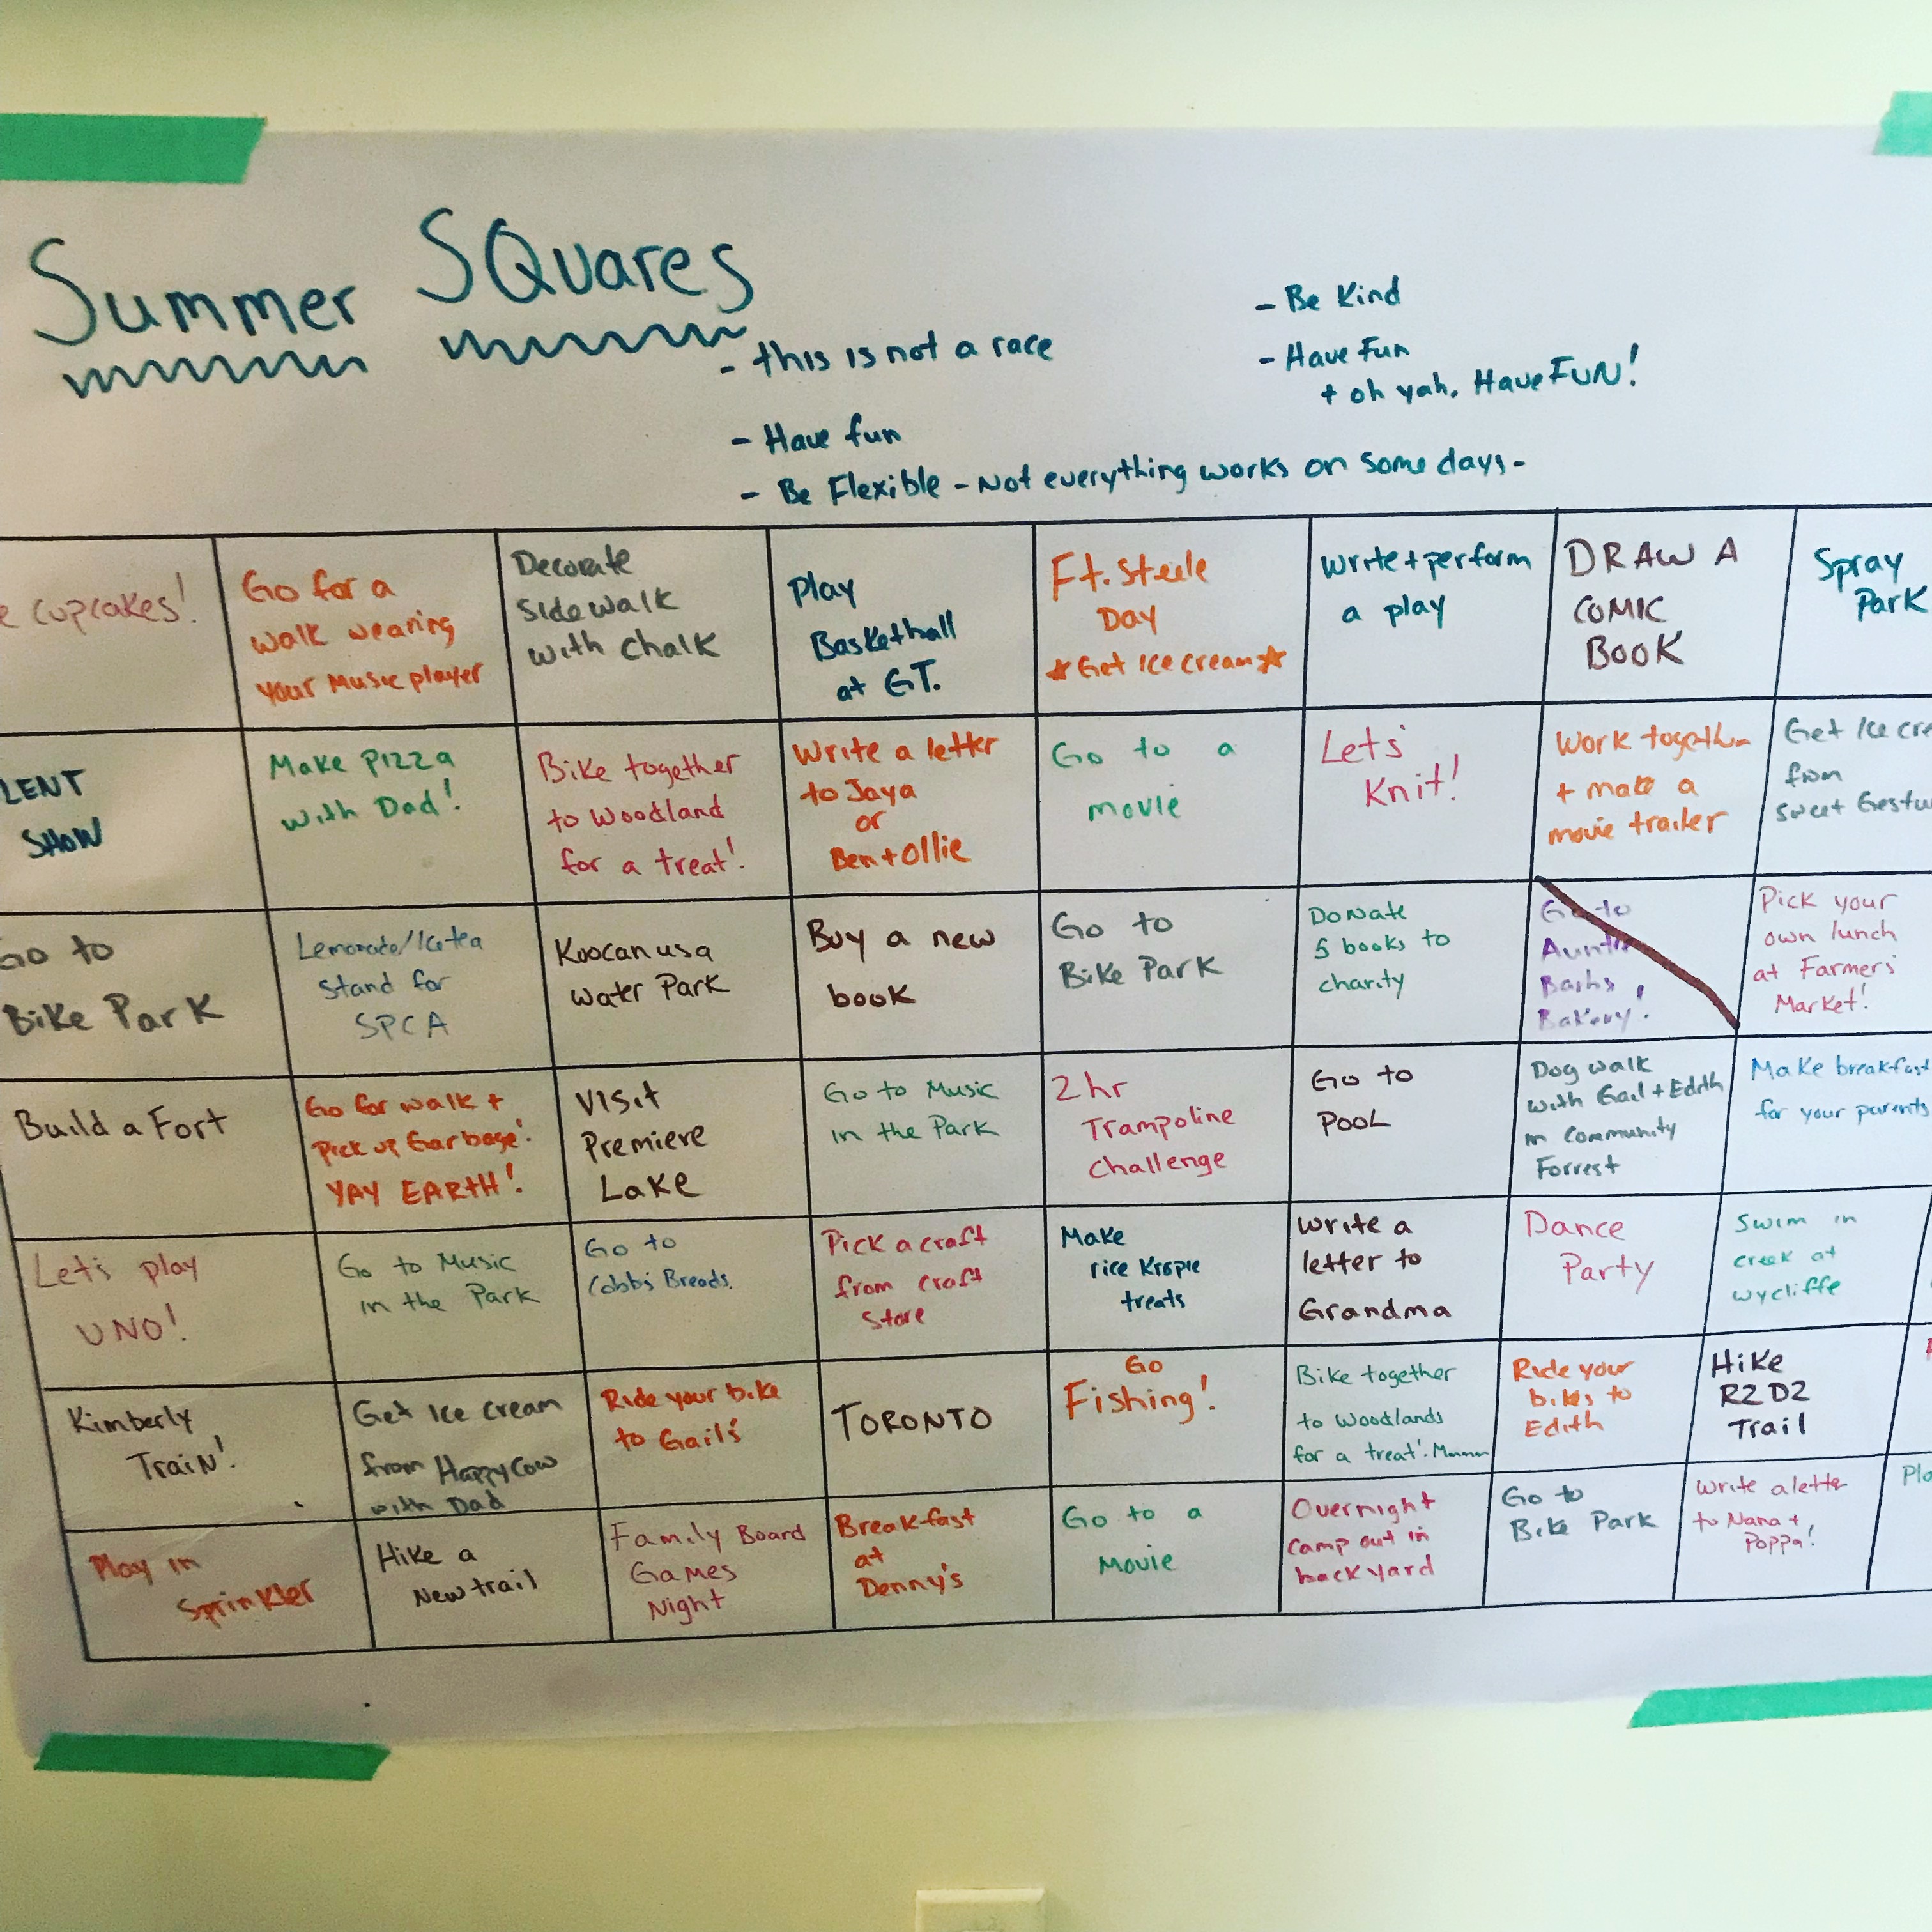 Summer SQuares
- this is not a race
- Have fun
- Be Flexible - Not everything works on some days -
- Be Kind
- Have Fun
+ oh yah, Have FUN!
cupcakes!
Go for a
walk wearing
your Music player
Decorate
Sidewalk
with Chalk
Play
Basketball
at GT.
Ft. Steele
Day
★Get Ice cream★
Write + perform
a play
DRAW A
COMIC
BOOK
Spray
Park
LENT
SHOW
Make Pizza
with Dad!
Bike together
to Woodland
for a treat!
Write a letter
to Jaya
or
Ben + Ollie
Go to a
movie
Lets
Knit!
Work together
+ make a
movie trailer
Get Ice cre
from
Sweet Gestu
Go to
Bike Park
Lemonade/Ice tea
Stand for
SPCA
Koocanusa
Water Park
Buy a new
book
Go to
Bike Park
Donate
5 books to
charity
Go to
Bakery!
Pick your
own lunch
at Farmers
Market!
Build a Fort
Go for walk +
Pick up Garbage!
YAY EARTH!
Visit
Premiere
Lake
Go to Music
in the Park
2 hr
Trampoline
Challenge
Go to
Pool
Dog walk
with Gail + Edith
in Community
Forrest
Make breakfast
for your parents
Let's play
UNO!
Go to Music
in the Park
Go to
Cobbs Breads.
Pick a craft
from craft
Store
Make
rice Krspie
treats
Write a
letter to
Grandma
Dance
Party
Swim in
creek at
wycliffe
Kimberly
Train!
Get Ice cream
from Happy Cow
with Dad
Ride your bike
to Gail's
TORONTO
Go
Fishing!
Bike together
to Woodlands
for a treat! Mmmm
Ride your
bikes to
Edith
Hike
R2D2
Trail
Play in
Sprinkler
Hike a
New trail
Family Board
Games
Night
Breakfast
at
Denny's
Go to a
Movie
Overnight
camp out in
back yard
Go to
Bike Park
Write a letter
to Nana +
Poppa!
Pla